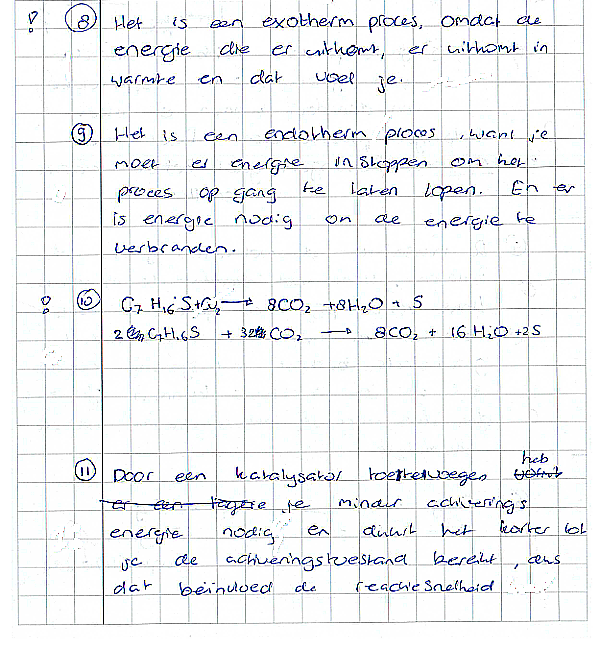 ? 8 Het is een exotherm proces, omdat de
energie die er uitkomt, er uitkomt in
warmte en dat voel je.
9 Het is een endotherm proces, want je
moet er energie in stoppen om het
proces op gang te laten lopen. En er
is energie nodig om de energie te
verbranden.
10 C7 H16 S + → 8CO2 + 8H2O + S
2 C7H16S + 32 CO2 → 8CO2 + 16 H2O + 2S
heb
11 Door een katalysator toe te voegen
er een lagere je minder activerings
energie nodig en duurt het korter tot
je de activeringstoestand bereikt, dus
dat beïnvloed de reactiesnelheid